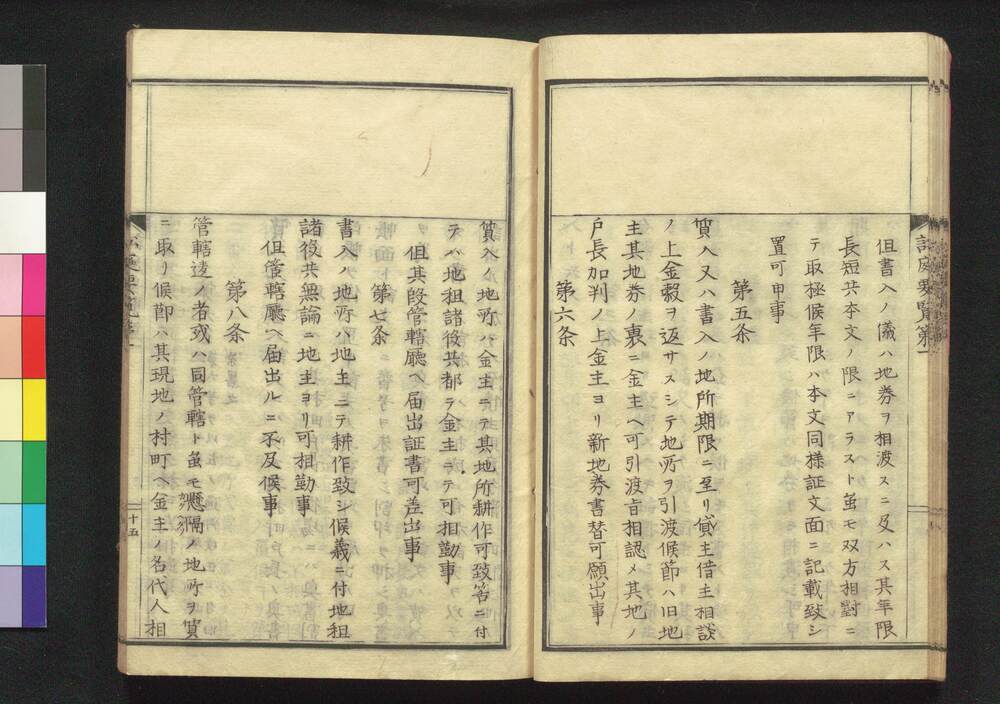 訟庭要覧第一
但書入ノ儀ハ地券ヲ相渡スニ及ハス其年限
長短共本文ノ限ニアラスト虽モ双方相對ニ
テ取極候年限ハ本文同様証文面ニ記載致シ
置可申事
第五条
質入又ハ書入ノ地所期限ニ至リ貸主借主相談
ノ上金穀ヲ返サスシテ地所ヲ引渡候節ハ旧地
主其地券ノ裏ニ金主ヘ可引渡旨相認メ其地ノ
戸長加判ノ上金主ヨリ新地券書替可願出事
第六条
質入ノ地所ハ金主ニテ其地所耕作可致筈ニ付
テハ地租諸役共都テ金主ニテ可相勤事
但其段管轄廳ヘ届出証書可差出事
第七条
書入ノ地所ハ地主ニテ耕作致シ候義ニ付地租
諸役共無論ニ地主ヨリ可相勤事
但管轄廳ヘ届出ルニ不及候事
第八条
管轄違ノ者或ハ同管轄ト虽モ懸隔ノ地所ヲ質
ニ取リ候節ハ其現地ノ村町ヘ金主ノ名代人相
十五